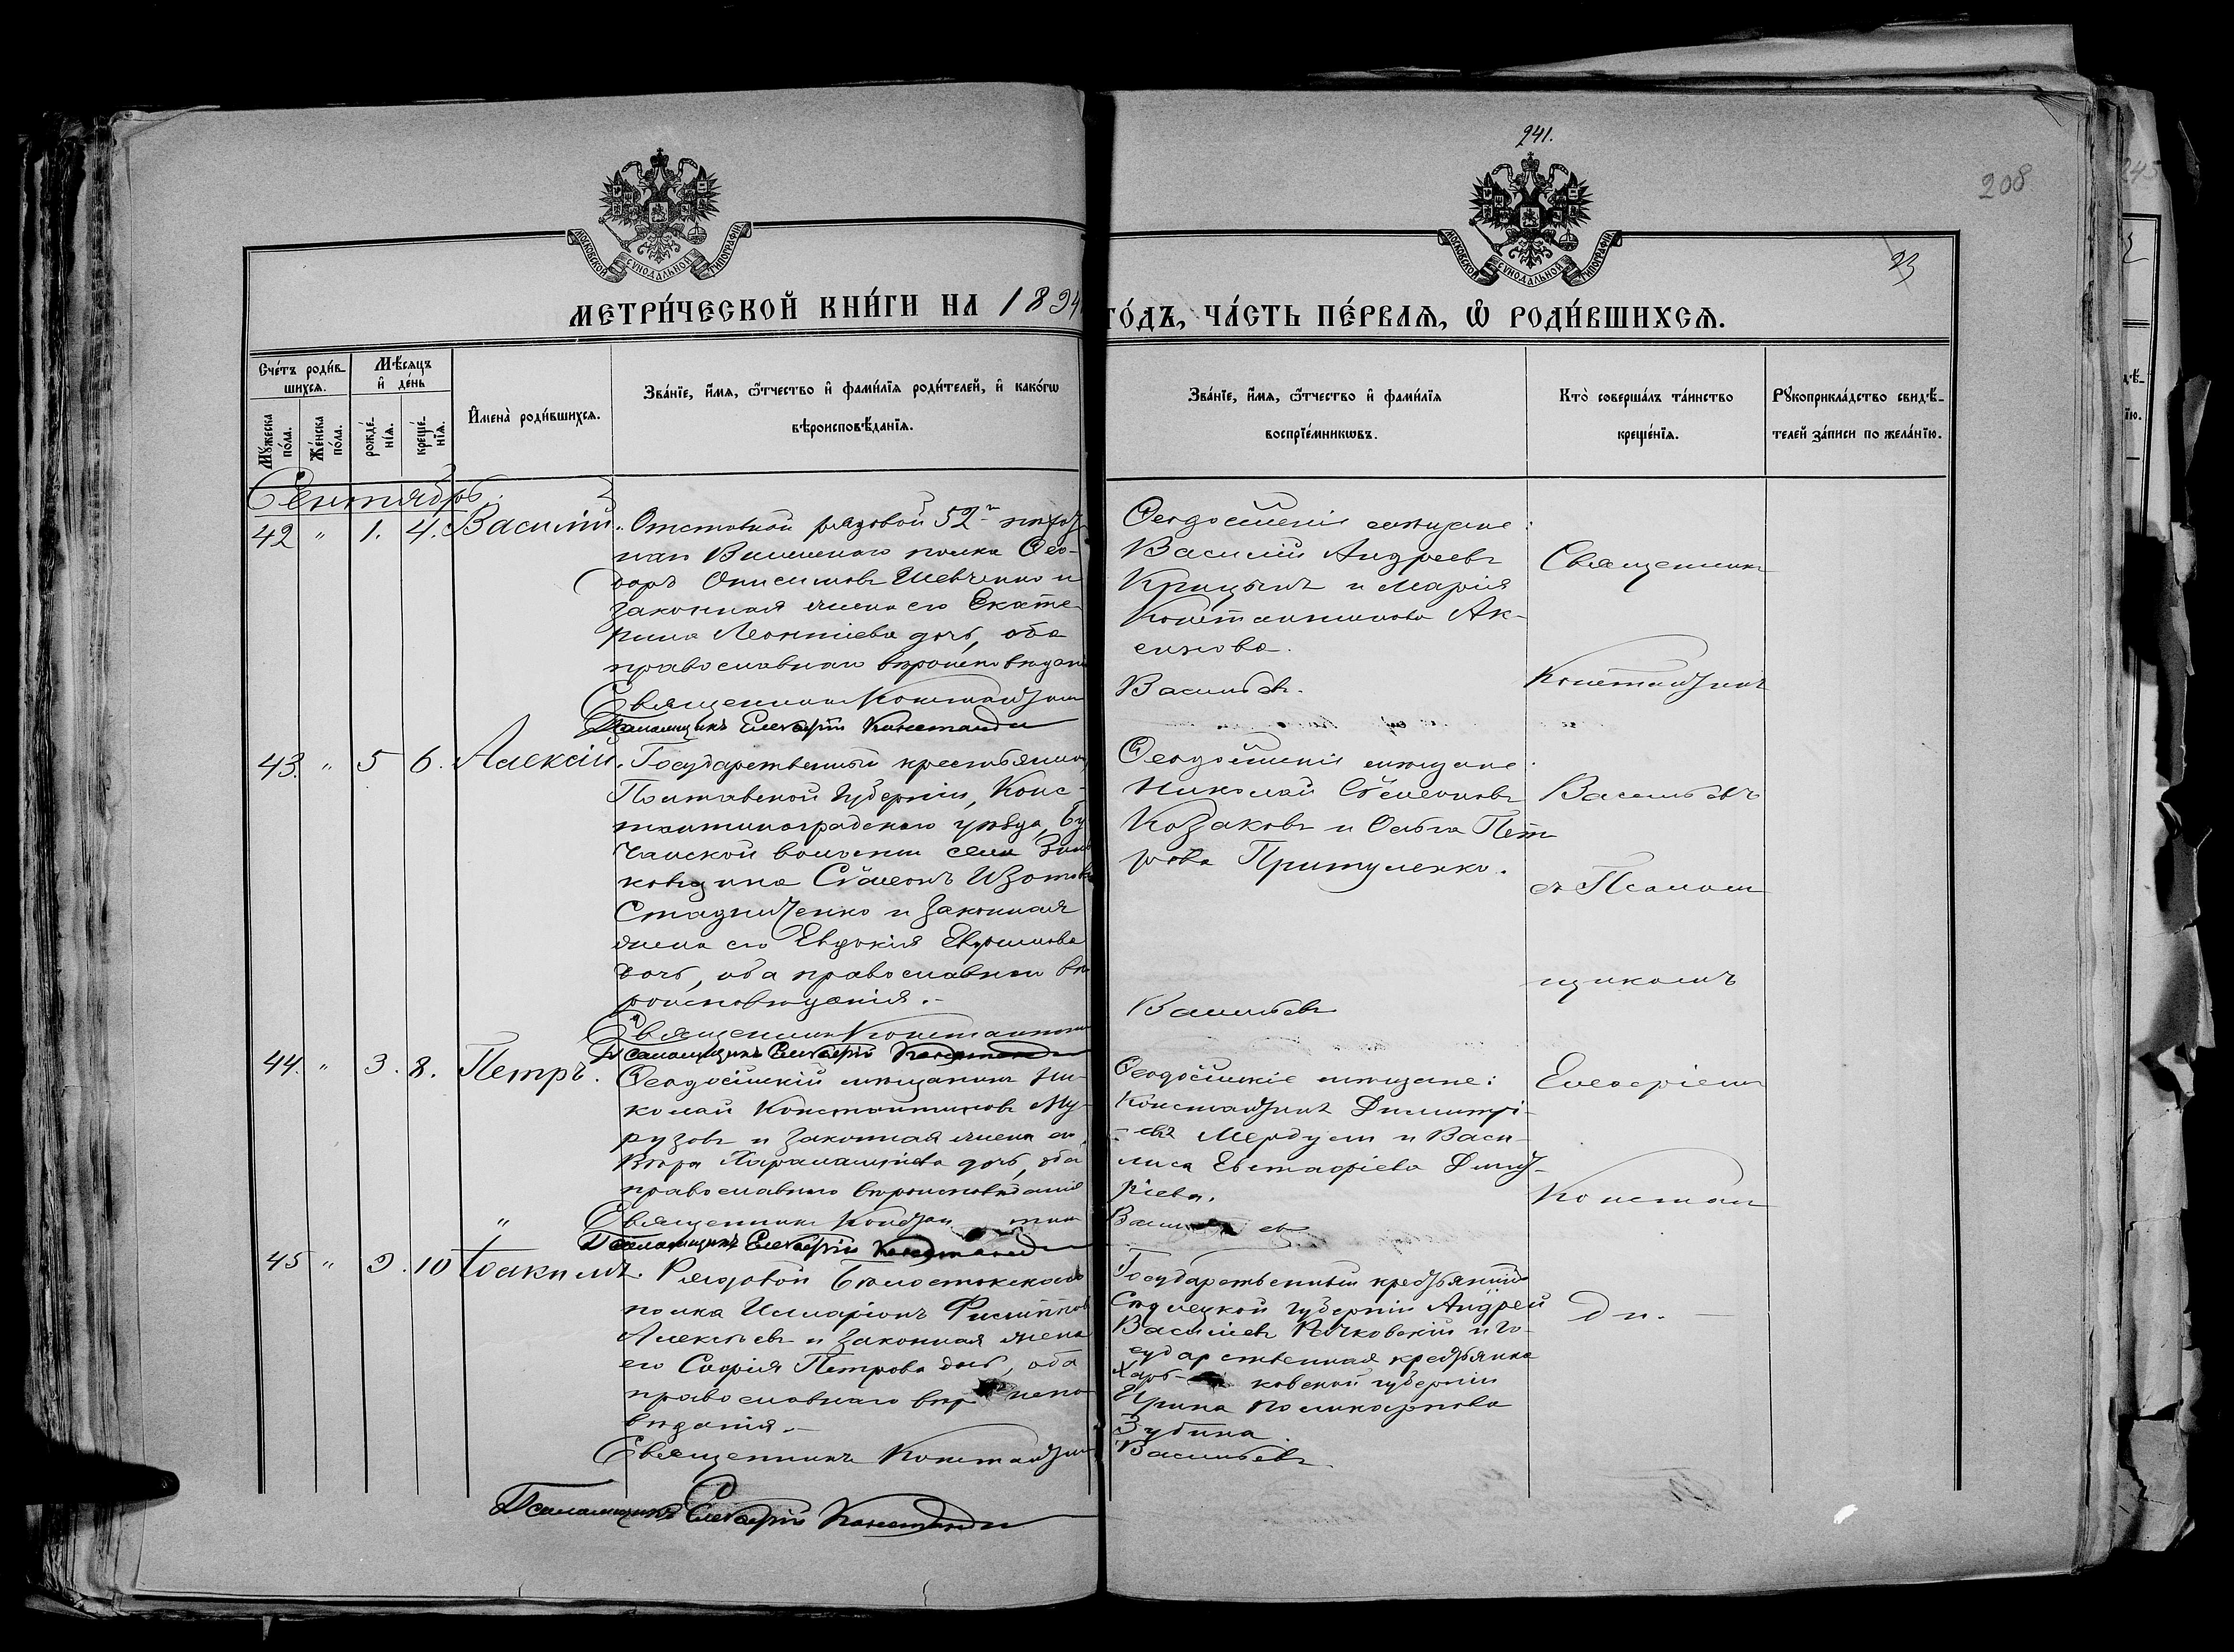 241.
208
23
МОСКОВСКОЙ СѴНОДАЛЬНОЙ ТИПОГРАФІИ
МОСКОВСКОЙ СѴНОДАЛЬНОЙ ТИПОГРАФІИ
МЕТРИ́ЧЕСКОЙ КНИ́ГИ НА 1894
ГО́ДЪ, ЧА́СТЬ ПЕ́РВАѦ, Ѡ РОДИ́ВШИХСѦ.
Сче́тъ роди́в-
шихсѧ.
Мꙋжеска
по́ла.
Же́нска
по́ла.
Мѣ́сѧцъ
и҆ де́нь
рожде́-
нїѧ.
креще́-
нїѧ.
И҆мена̀ роди́вшихсѧ.
Зва́нїе, и҆́мѧ, ѻ҆́тчество и҆ фами́лїѧ роди́телей, и҆ како́гѡ
вѣроисповѣ́данїѧ.
Зва́нїе, и҆́мѧ, ѻ҆́тчество и҆ фами́лїѧ
воспрїе́мникѡвъ.
Кто̀ соверша́лъ та́инство
креще́нїѧ.
Рꙋкоприкла́дство свидѣ́-
телей за́писи по жела́нїю.
Сентябрь.
42 " 1. 4. Василій.
Отставной рядовой 52го пѣхот
наго Виленскаго полка Ѳео-
доръ Онисимовъ Шевченко и
законная жена его Екате-
рина Леонтіева дочь, оба
православнаго вѣроисповѣдан
Священникъ Константинъ
Псаломщикъ Елевѳерій Констанди
Ѳеодосійскіе мѣщане:
Василій Андреевъ
Крицынъ и Марія
Константинова Ак-
сенова.
Васильевъ.
Священникъ
Константинъ
43. " 5 6. Алексій.
Государственный крестьянинъ
Полтавской Губерніи, Конс-
тантиноградскаго уѣзда,
чанской волости села
ковщина Сѵмеонъ Изотов
Стадниченко и законная
жена его Евдокія
дочь, оба православнаго вѣ
роисповѣданія.-
Священникъ Константинъ
Псаломщикъ Елевѳерій Констанди
Ѳеодосійскіе мѣщане:
Николай Сѵмеоновъ
Козаковъ и Ольга Пет
рова Притуленко.
Васильевъ
Васильевъ
съ Псалом
щикомъ
44. " 3. 8. Петръ.
Ѳеодосійскій мѣщанинъ Ни-
колай Константиновъ Му-
рузовъ и законная жена его
Вѣра Харалампіева дочь, оба
православнаго вѣроисповѣданія
Священникъ Констан тинъ
Псаломщикъ Елевѳерій Констанди
Ѳеодосійскіе мѣщане:
Константинъ Димитрі-
евъ Мердули и Васи-
лиса Евстафіева Димит-
ріева.
Василь евъ
Елевѳеріемъ
Констан
45 " 9. 10 Іоакимъ.
Рядовой Бѣлостокскаго
полка Илларіонъ
Алексѣевъ и законная жена
его Софія Петрова дочь, оба
православнаго вѣр испо
вѣданія.-
Священникъ Константинъ
Псаломщикъ Елевѳерій Констанди
Государственный крестьянинъ
губерніи Андрей
Василіевъ и го-
сударственная крестьянка
Харь- ковской губерніи
Ирина Поликарпова
Зубина.
Васильевъ
ди.-